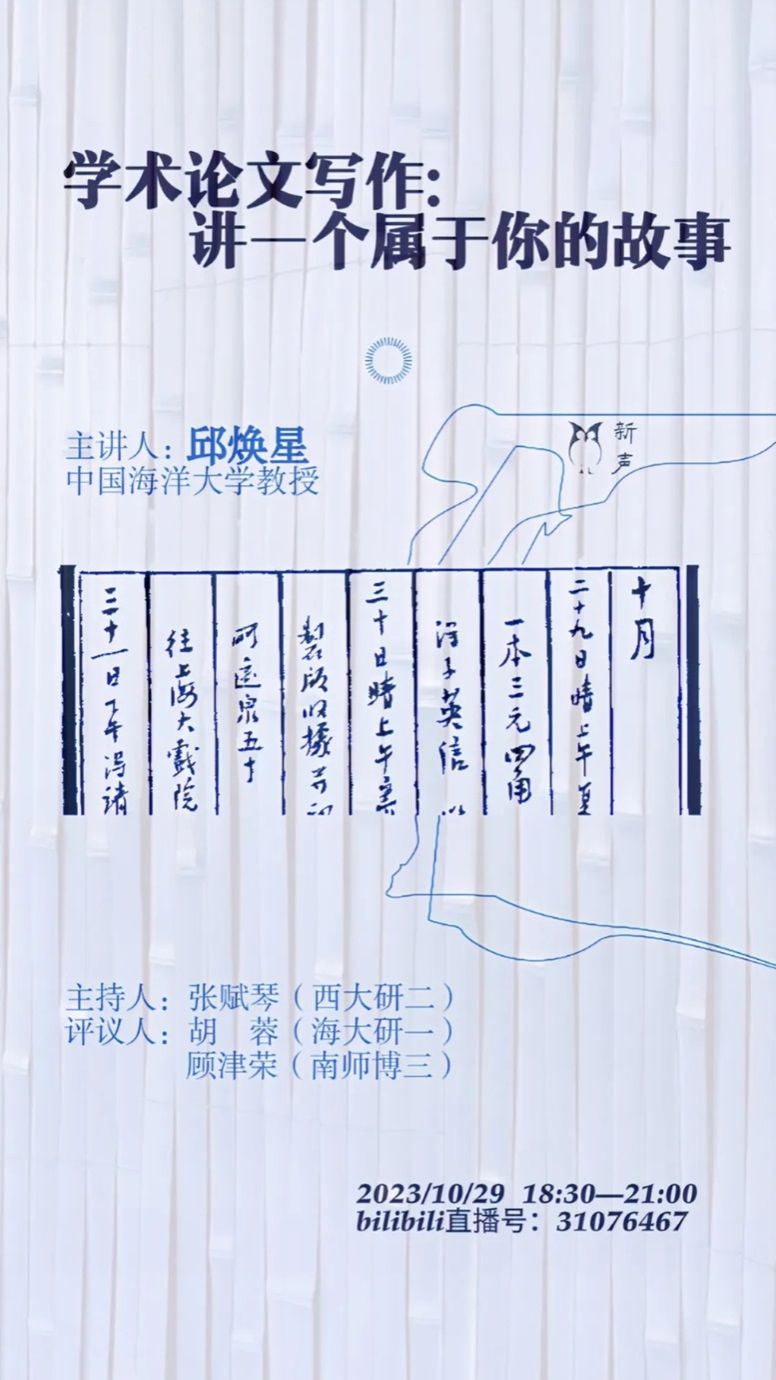 学术论文写作:
讲一个属于你的故事
主讲人：邱焕星
中国海洋大学教授
新声
十月
二十九日晴上午
一本三元四角
三十日晴上午
往上海大戏院
三十一日下午冯
主持人：张赋琴（西大研二）
评议人：胡　蓉（海大研一）
顾津荣（南师博三）
2023/10/29 18:30—21:00
bilibili直播号：31076467